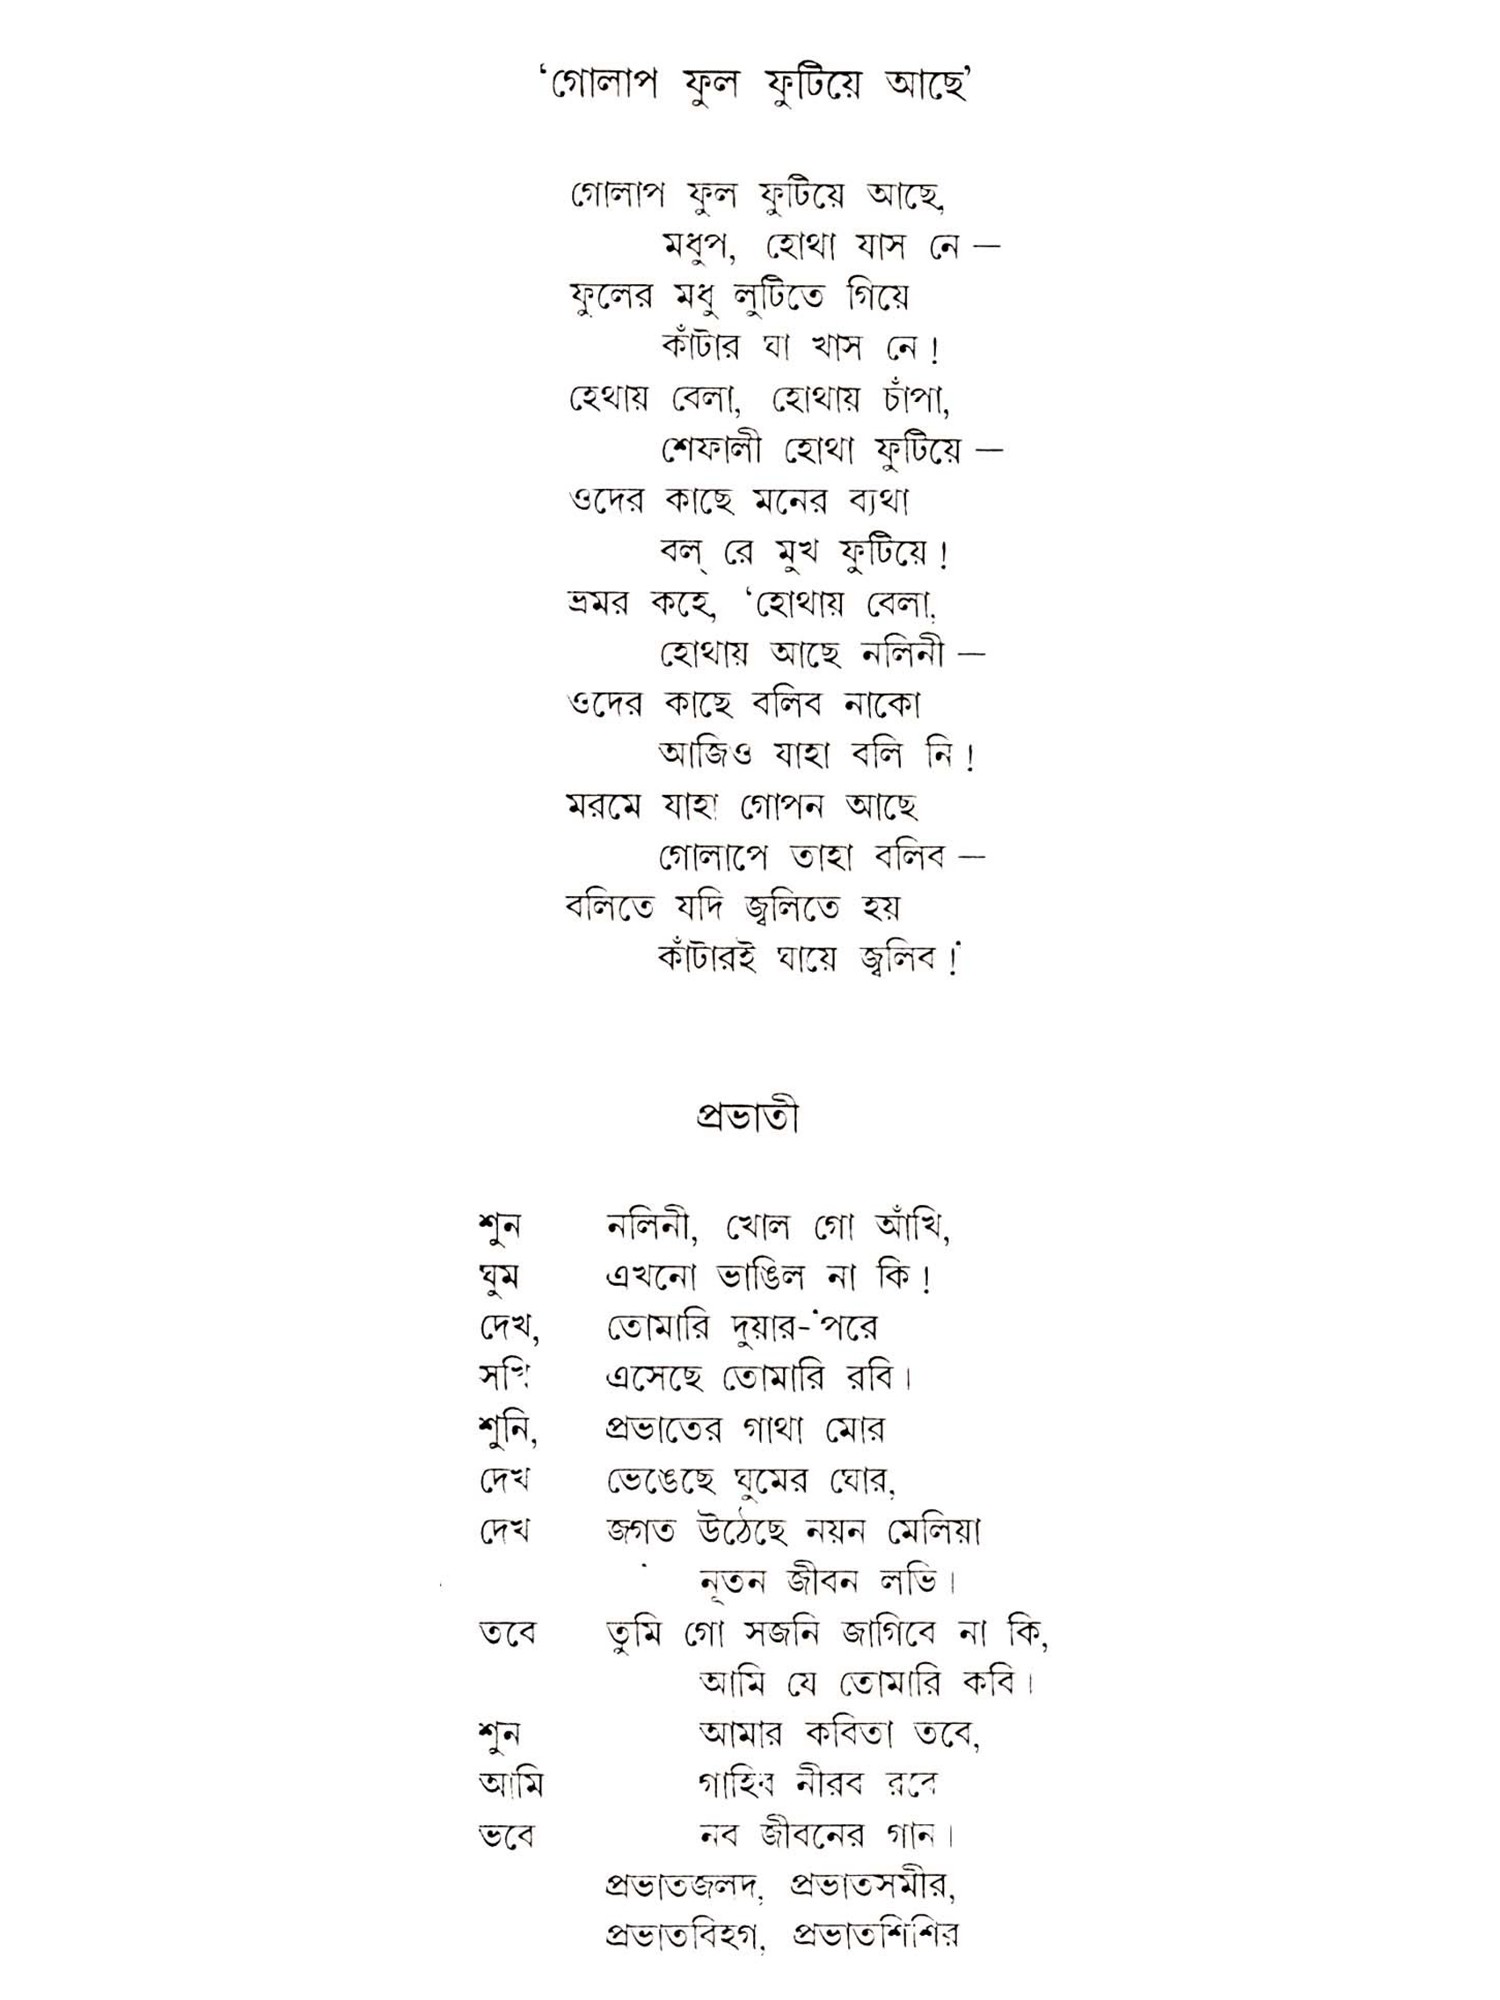 ‘গোলাপ ফুল ফুটিয়ে আছে’
গোলাপ ফুল ফুটিয়ে আছে,
মধুপ, হোথা যাস নে —
ফুলের মধু লুটিতে গিয়ে
কাঁটার ঘা খাস নে !
হেথায় বেলা, হোথায় চাঁপা,
শেফালী হোথা ফুটিয়ে —
ওদের কাছে মনের ব্যথা
বল্ রে মুখ ফুটিয়ে !
ভ্রমর কহে, ‘হোথায় বেলা,
হোথায় আছে নলিনী —
ওদের কাছে বলিব নাকো
আজিও যাহা বলি নি !
মরমে যাহা গোপন আছে
গোলাপে তাহা বলিব —
বলিতে যদি জ্বলিতে হয়
কাঁটারই ঘায়ে জ্বলিব !’
প্রভাতী
শুন নলিনী, খোল গো আঁখি,
ঘুম এখনো ভাঙিল না কি !
দেখ, তোমারি দুয়ার-’পরে
সখি এসেছে তোমারি রবি।
শুনি, প্রভাতের গাথা মোর
দেখ ভেঙেছে ঘুমের ঘোর,
দেখ জগত উঠেছে নয়ন মেলিয়া
নূতন জীবন লভি।
তবে তুমি গো সজনি জাগিবে না কি,
আমি যে তোমারি কবি।
শুন আমার কবিতা তবে,
আমি গাহিব নীরব রবে
ভবে নব জীবনের গান।
প্রভাতজলদ, প্রভাতসমীর,
প্রভাতবিহগ, প্রভাতশিশির